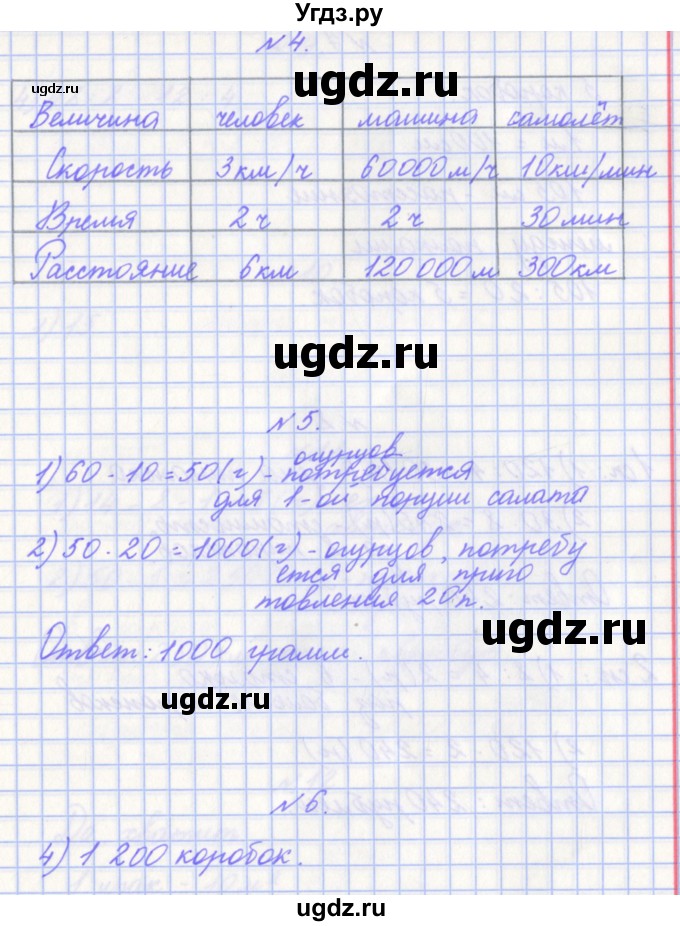 Угдз.ру
№4.
ugdz.ru
ugdz.ru
Величина человек машина самолёт
Скорость 3км/ч 60000м/ч 10км/мин
Время 2ч 2ч 30мин
Расстояние 6км 120000м 300км
ugdz.ru
№5.
огурцов
1) 60 - 10 = 50(г) - потребуется
для 1-ой порции салата
2) 50 · 20 = 1000(г) - огурцов, потребу
ется для приго
товления 20п.
ugdz.ru
Ответ: 1000 грамм.
ugdz.ru
№6.
4) 1 200 коробок.
ugdz.ru